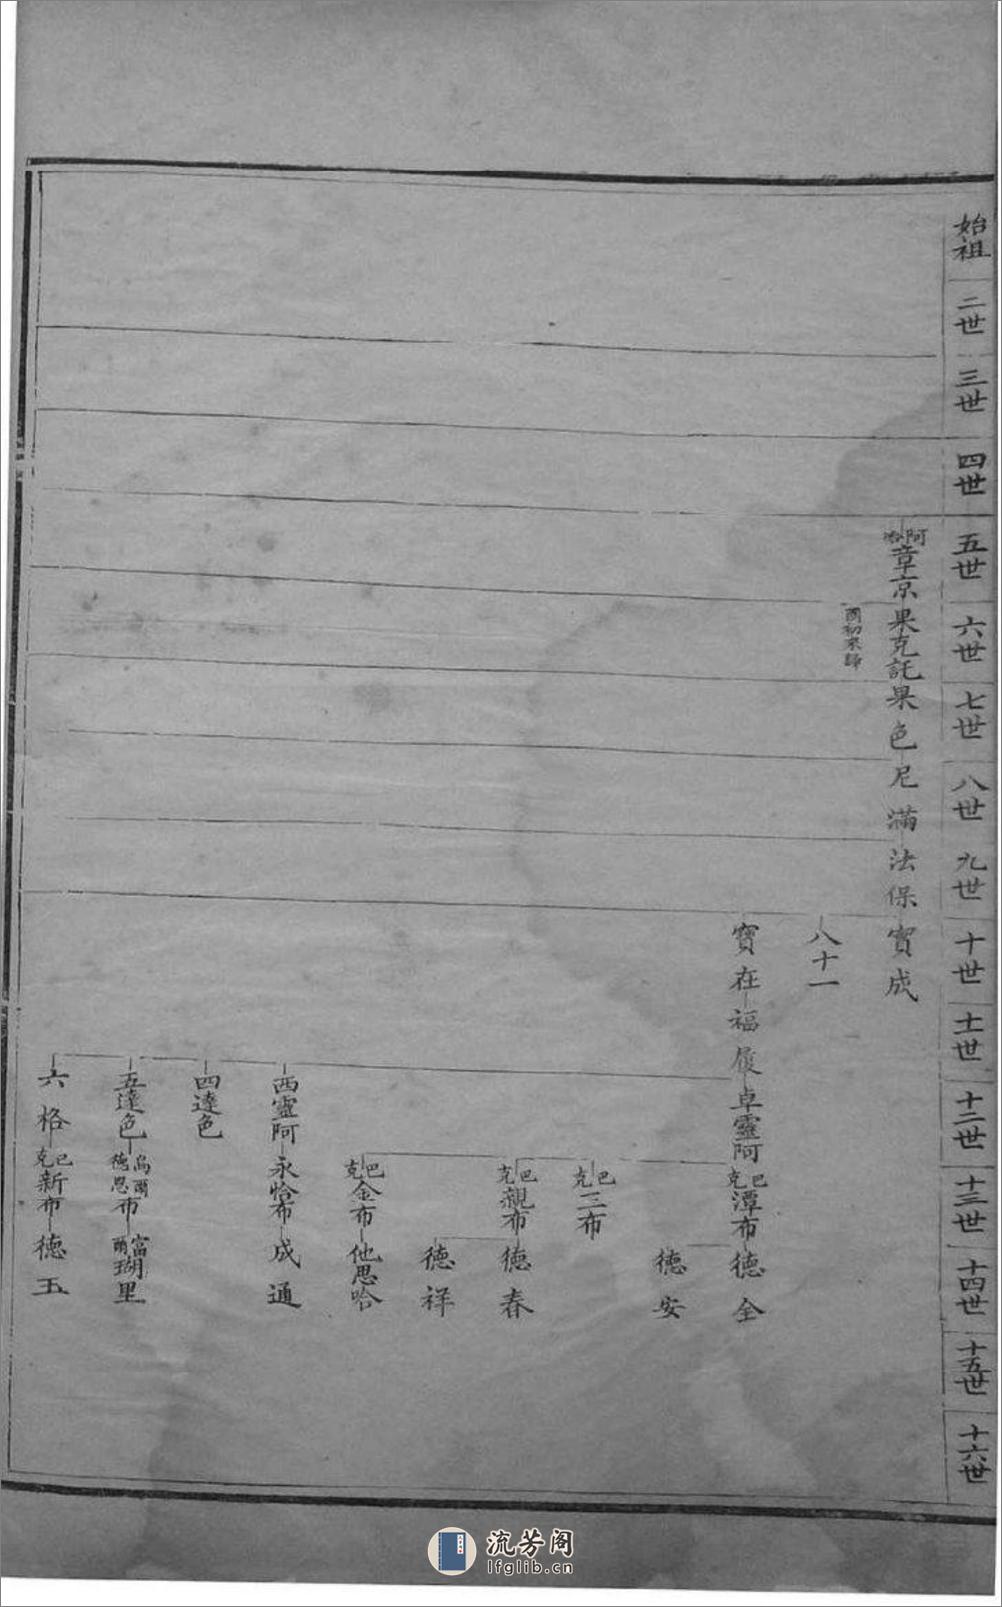 始祖
二世
三世
四世
五世
六世
七世
八世
九世
十世
十一世
十二世
十三世
十四世
十五世
十六世
阿哈章京果克託果色尼滿法保寶成
國初來歸
八十一
寶在福履卓靈阿巴克潭布德全
德安
巴克三布
巴克親布德春
德祥
巴克金布他思哈
西靈阿永恰布成通
四達色
五達色烏爾德恩布富爾瑚里
六格巴克新布德玉
流芳阁
lfglib.cn